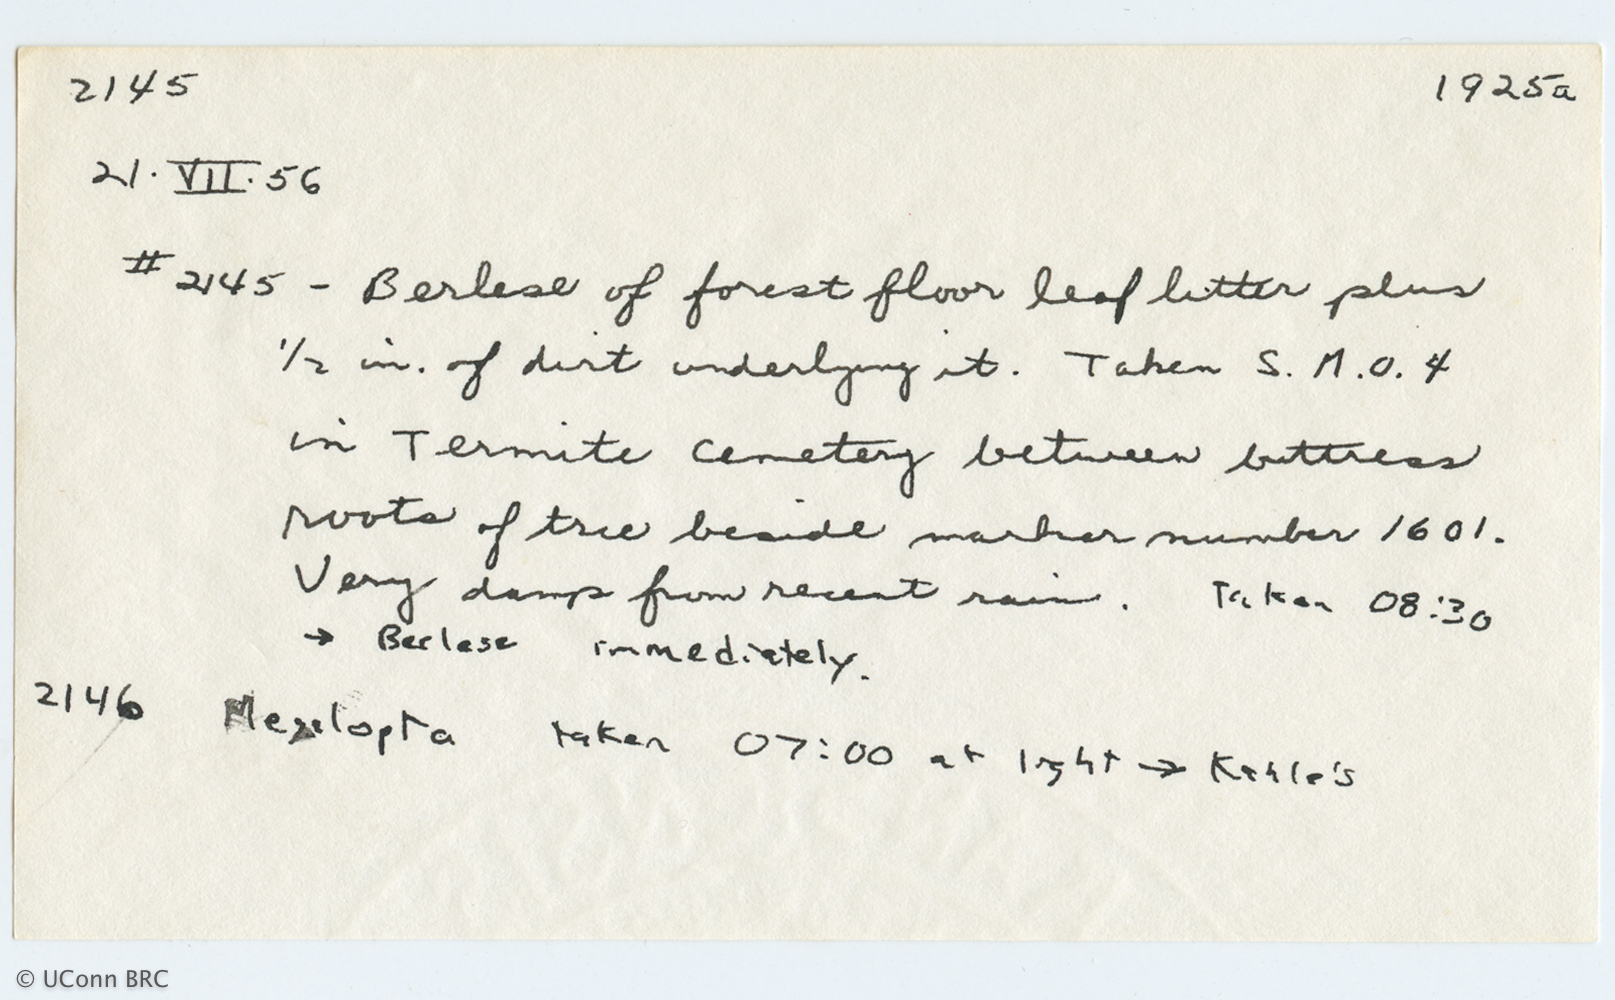 2145 1925a
21.VII.56
#2145 - Berlese of forest floor leaf litter plus
1/2 in. of dirt underlying it. Taken S. M. O. 4
in Termite Cemetery between buttress
roots of tree beside marker number 1601.
Very damp from recent rain. Taken 08:30
→ Berlese immediately.
2146 Megalopta taken 07:00 at light → Kahle's
© UConn BRC